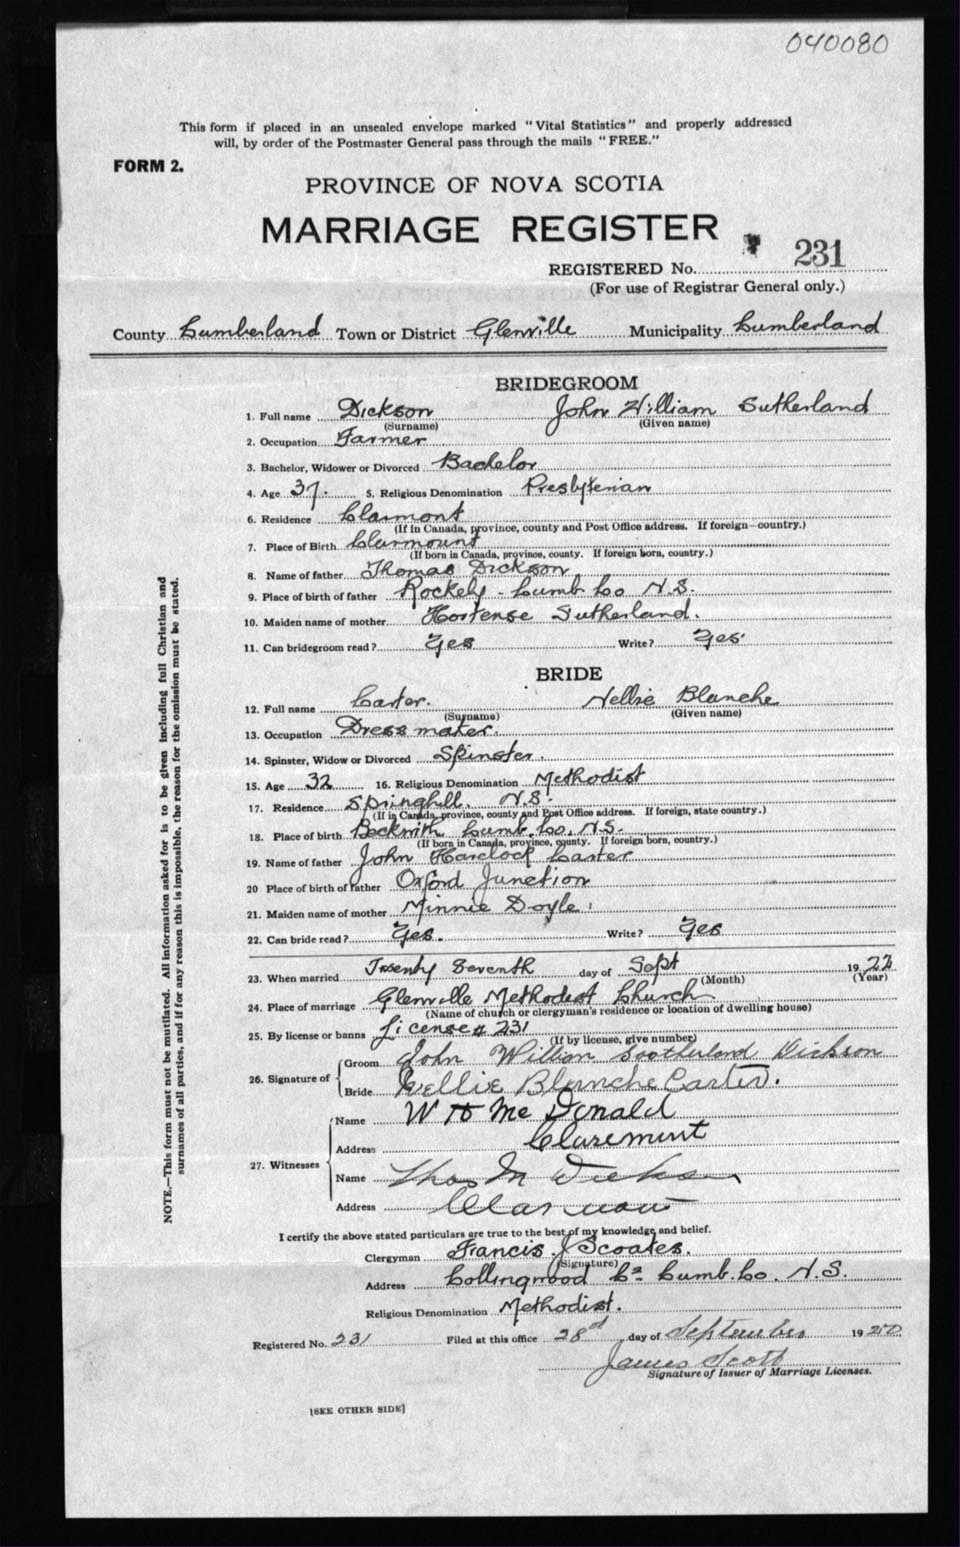 040080
This form if placed in an unsealed envelope marked "Vital Statistics" and properly addressed
will, by order of the Postmaster General pass through the mails "FREE."
FORM 2.
PROVINCE OF NOVA SCOTIA
MARRIAGE REGISTER
REGISTERED No. 231
(For use of Registrar General only.)
County Cumberland Town or District Glenville Municipality Cumberland
BRIDEGROOM
1. Full name Dickson John William Sutherland
(Surname) (Given name)
2. Occupation Farmer
3. Bachelor, Widower or Divorced Bachelor
4. Age 37. 5. Religious Denomination Presbyterian
6. Residence Clarmont
(If in Canada, province, county and Post Office address. If foreign—country.)
7. Place of Birth Clarmount
(If born in Canada, province, county. If foreign born, country.)
8. Name of father Thomas Dickson
9. Place of birth of father Rockely - Cumb. Co N.S.
10. Maiden name of mother Hortense Sutherland.
11. Can bridegroom read? Yes Write? Yes
BRIDE
12. Full name Carter. Nellie Blanche
(Surname) (Given name)
13. Occupation Dress maker.
14. Spinster, Widow or Divorced Spinster.
15. Age 32 16. Religious Denomination Methodist
17. Residence Springhill. N.S.
(If in Canada, province, county and Post Office address. If foreign, state country.)
18. Place of birth Beckwith Cumb. Co. N.S.
(If born in Canada, province, county. If foreign born, country.)
19. Name of father John Havelock Carter
20 Place of birth of father Oxford Junction
21. Maiden name of mother Minnie Doyle
22. Can bride read? Yes. Write? Yes
23. When married Twenty Seventh day of Sept 1922
(Month) (Year)
24. Place of marriage Glenville Methodist Church
(Name of church or clergyman's residence or location of dwelling house)
25. By license or banns License # 231
(If by license, give number)
26. Signature of Groom John William Sootherland Dickson
Bride Nellie Blanche Carter.
27. Witnesses Name W H McDonald
Address Claremont
Name Thos M Dickson
Address
I certify the above stated particulars are true to the best of my knowledge and belief.
Clergyman Francis J Scoates.
(Signature)
Address Collingwood Cr. Cumb. Co. N.S.
Religious Denomination Methodist.
Registered No. 231 Filed at this office 28th day of September 1920
James Scott
Signature of Issuer of Marriage Licenses.
[SEE OTHER SIDE]
NOTE.—This form must not be mutilated. All information asked for is to be given including full Christian and
surnames of all parties, and if for any reason this is impossible, the reason for the omission must be stated.